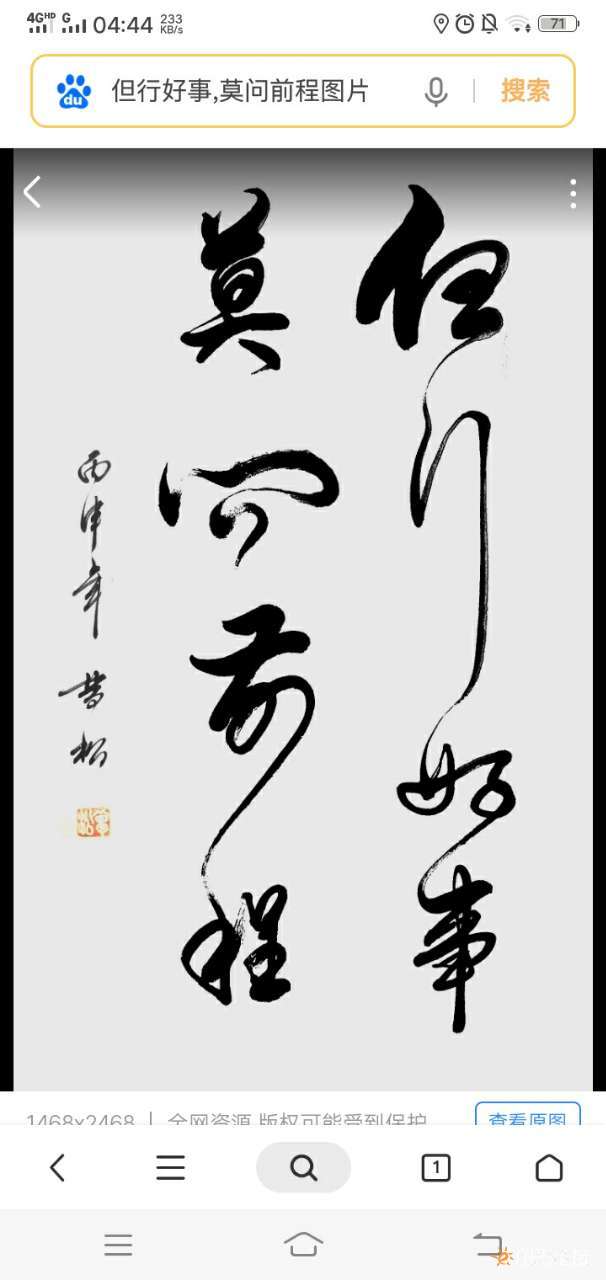 4GHD G 04:44 233 KB/s 71
但行好事,莫问前程图片 搜索
但行好事
莫问前程
丙申年
1468x2468 | 全网资源 版权可能受到保护 查看原图
1